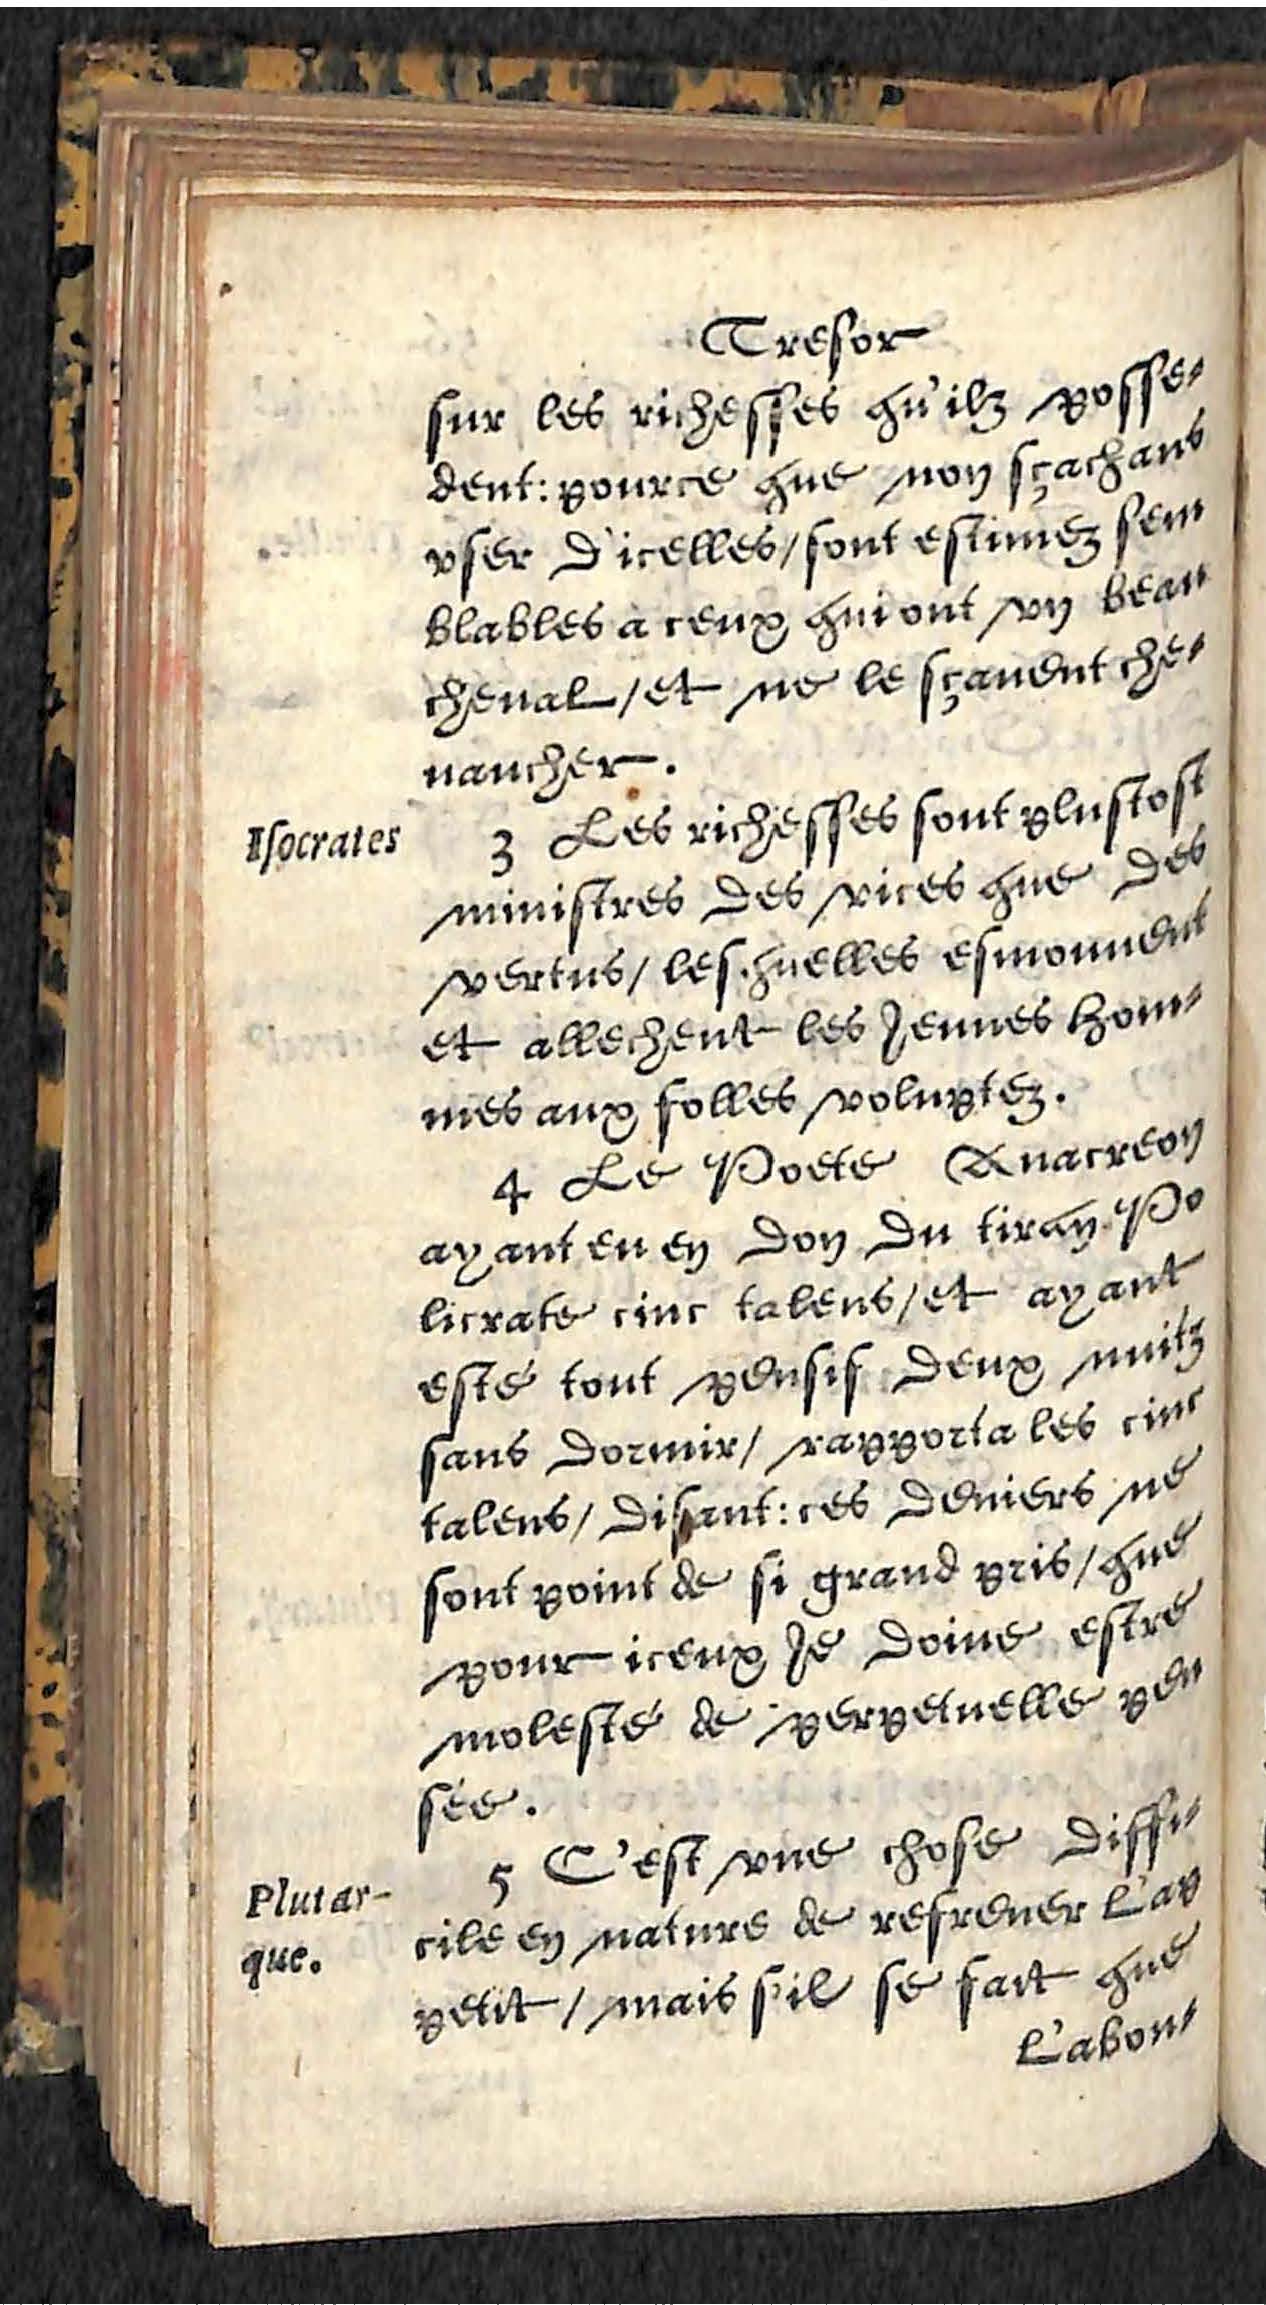 Tresor
sur les richesses qu'ilz posse-
dent: pource que non sçachans
vser d'icelles/ sont estimez sem
blables à ceux qui ont vn beau
cheual/ et ne le sçauent che-
uaucher.
Isocrates
3 Les richesses sont plustost
ministres des vices que des
vertus/ lesquelles esmouuent
et allechent les Jeunes hom-
mes aux folles voluptez.
4 Le Poete Anacreon
ayant eu en don du tiran Po
licrate cinc talens/ et ayant
esté tout pensif deux nuitz
sans dormir/ rapporta les cinc
talens/ disant: ces deniers ne
sont point de si grand pris/ que
pour iceux Je doiue estre
molesté de perpetuelle pen
sée.
5 C'est vne chose diffi-
Plutar-
que.
cile en nature de refrener L'ap
petit/ mais s'il se fait que
L'abon-